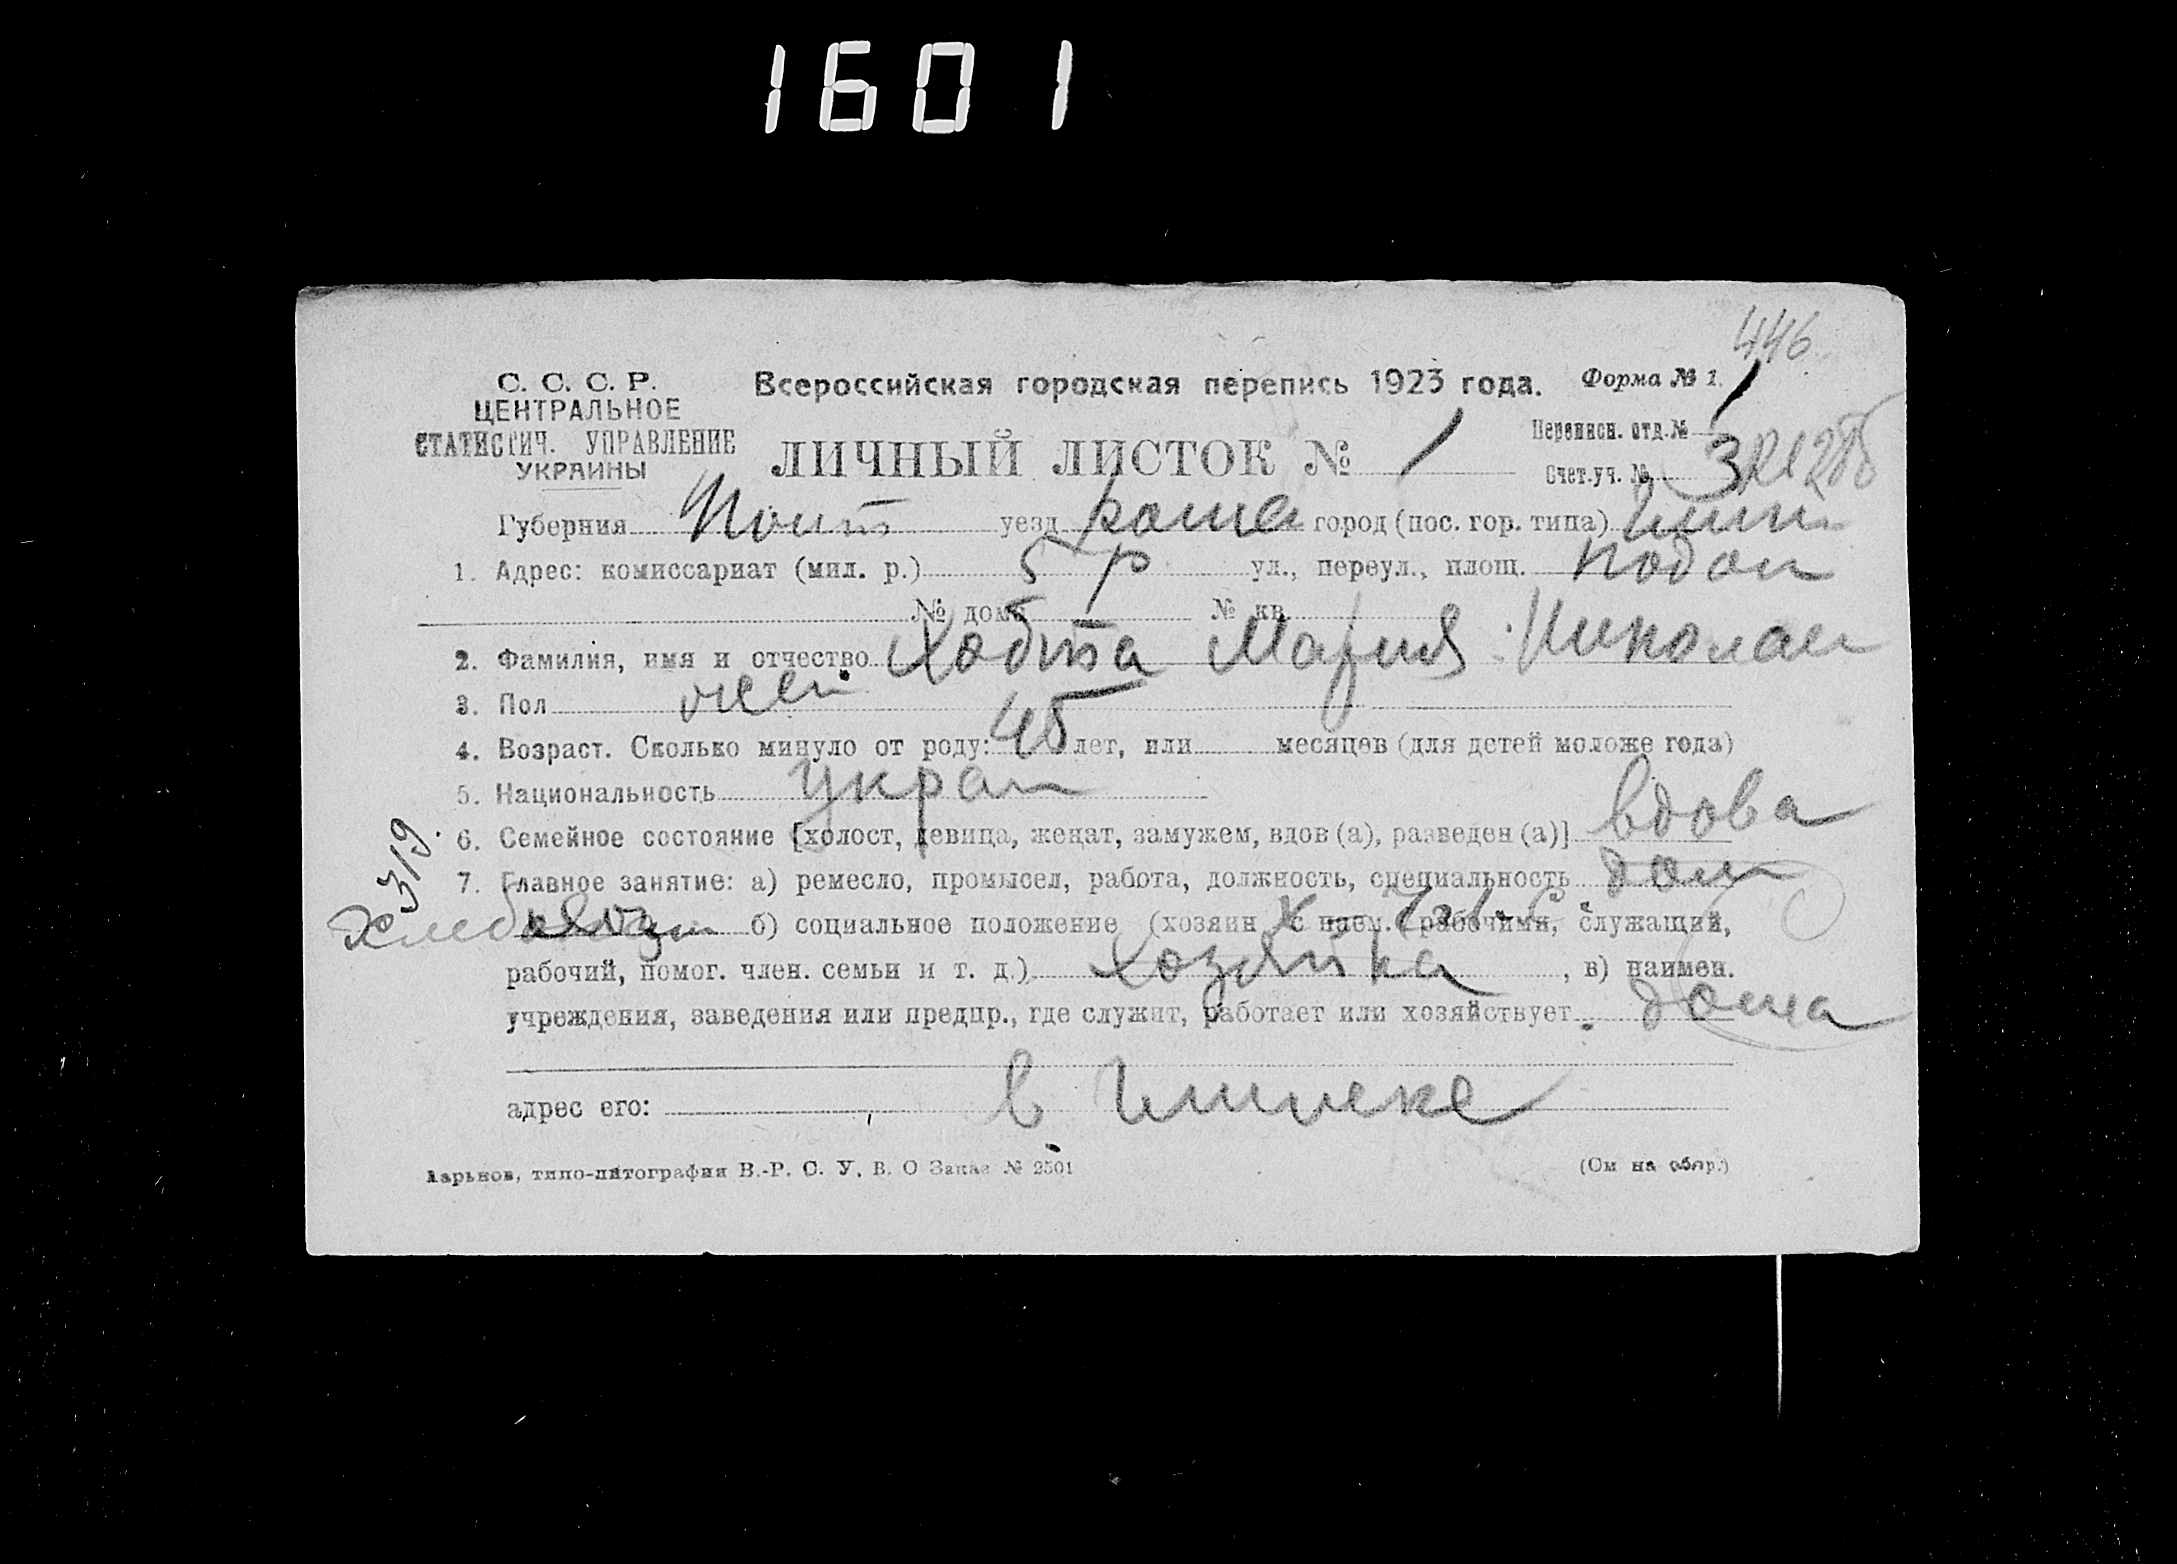 1601
446
С. С. С. Р.
ЦЕНТРАЛЬНОЕ
СТАТИСТИЧ. УПРАВЛЕНИЕ
УКРАИНЫ
Всероссийская городская перепись 1923 года. Форма № 1.
ЛИЧНЫЙ ЛИСТОК № 1
Переписн. отд. № 1
Счет.уч. № 3
Губерния уезд город (пос. гор. типа)
1. Адрес: комиссариат (мил. р.) 5 р ул., переул., площ. Подол
№ дома № кв.
2. Фамилия, имя и отчество Ходта Мария Николаев
3. Пол жен.
4. Возраст. Сколько минуло от роду: 45 лет, или месяцев (для детей моложе года)
5. Национальность Украи
6. Семейное состояние [холост, девица, женат, замужем, вдов (а), разведен (а)] вдова
7. Главное занятие: а) ремесло, промысел, работа, должность, специальность дом
319.
б) социальное положение (хозяин с наем. рабочими, служащий,
рабочий, помог. член. семьи и т. д.) Хозяйка , в) наимен.
учреждения, заведения или предпр., где служит, работает или хозяйствует дома
адрес его: в
Харьков, типо-литография В.-Р. С. У. В. О Заказ № 2501 (См на обор.)